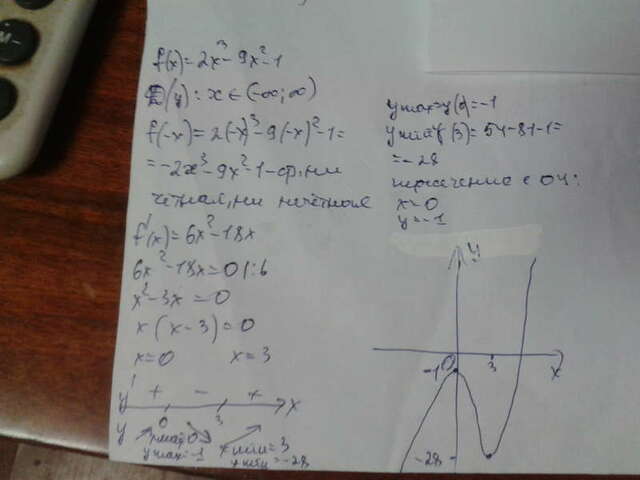 f(x)=2x³-9x²-1
D(y): x∈(-∞;∞)
f(-x)=2(-x)³-9(-x)²-1=
=-2x³-9x²-1-ф. ни
четная, ни нечётная
f'(x)=6x²-18x
6x²-18x=0|:6
x²-3x=0
x(x-3)=0
x=0 x=3
y' + - + x
y 0 3
xmax=0 xmin=3
ymax=-1 ymin=-28
ymax=y(0)=-1
ymin=y(3)=54-81-1=
=-28
пересечение с OY:
x=0
y=-1
y
0 3 x
-1
-28